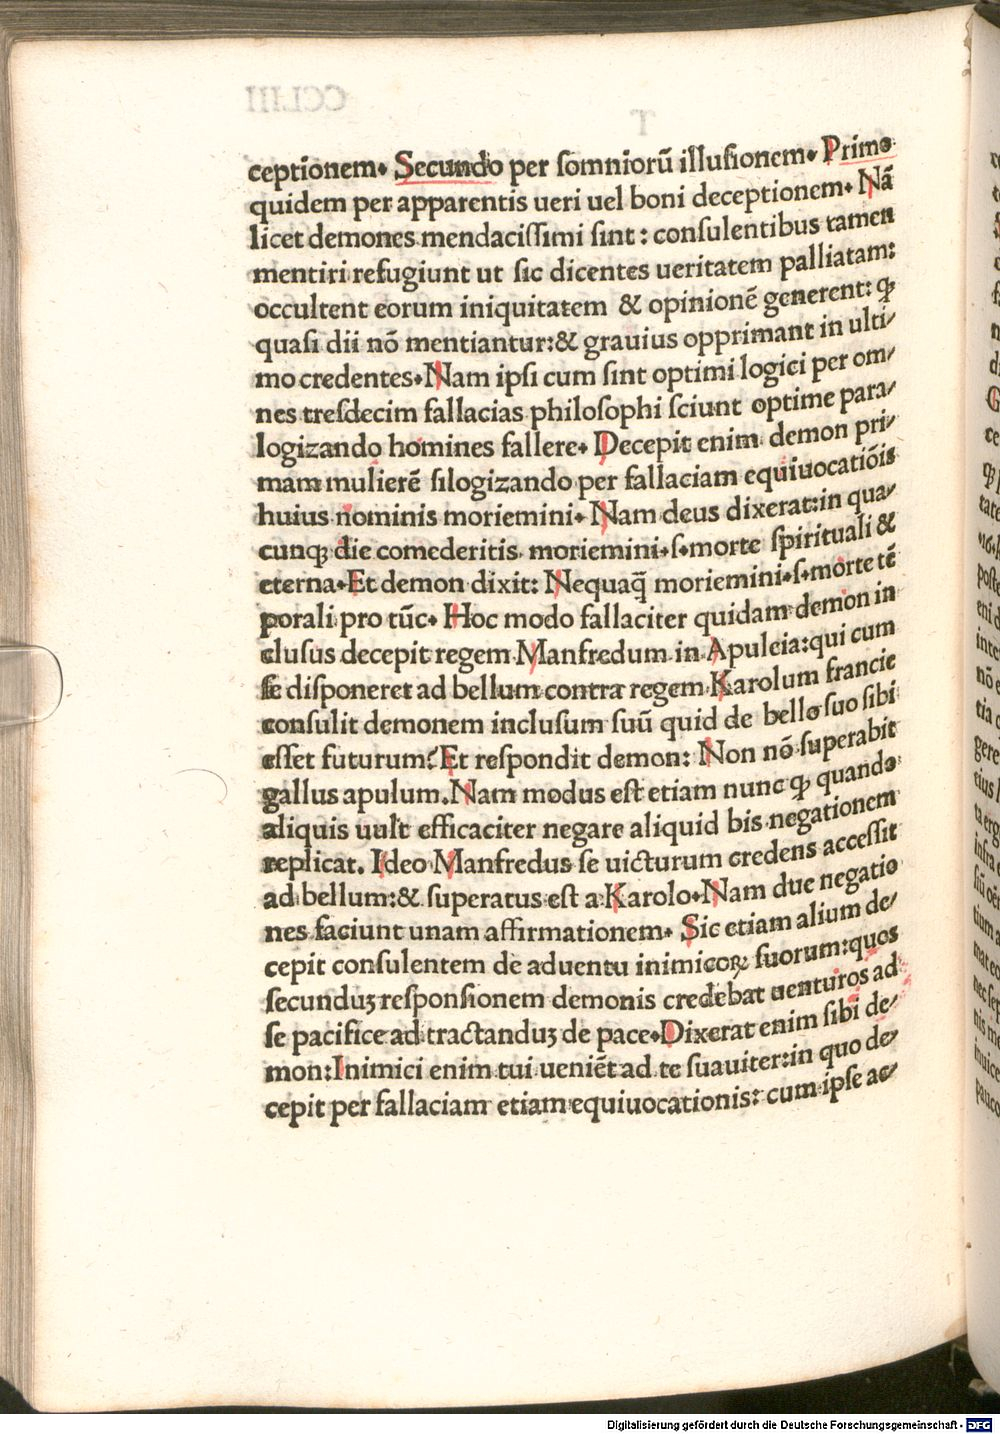 ceptionem. Secundo per somniorū illusionem. Primo
quidem per apparentis ueri uel boni deceptionem. Nā
licet demones mendacissimi sint: consulentibus tamen
mentiri refugiunt ut sic dicentes ueritatem palliatam:
occultent eorum iniquitatem & opinionē generent: ꝙ
quasi dii nō mentiantur:& grauius opprimant in ulti/
mo credentes. Nam ipsi cum sint optimi logici per om/
nes tresdecim fallacias philosophi sciunt optime para/
logizando homines fallere. Decepit enim demon pri/
mam mulierē silogizando per fallaciam equiuocatiōis
huius nominis moriemini. Nam deus dixerat:in qua/
cunqꝫ die comederitis moriemini.s.morte spirituali &
eterna. Et demon dixit: Nequaq̄ moriemini.s.morte tē
porali pro tūc. Hoc modo fallaciter quidam demon in
clusus decepit regem Manfredum in Apuleia:qui cum
se disponeret ad bellum contra regem Karolum francie
consulit demonem inclusum suū quid de bello suo sibi
esset futurum? Et respondit demon: Non nō superabit
gallus apulum. Nam modus est etiam nunc ꝙ quando
aliquis uult efficaciter negare aliquid bis negationem
replicat. Ideo Manfredus se uicturum credens accessit
ad bellum:& superatus est a Karolo. Nam due negatio
nes faciunt unam affirmationem. Sic etiam alium de/
cepit consulentem de aduentu inimicoꝝ suorum:quos
secunduꝫ responsionem demonis credebat uenturos ad
se pacifice ad tractanduꝫ de pace. Dixerat enim sibi de/
mon:Inimici enim tui ueniēt ad te suauiter:in quo de/
cepit per fallaciam etiam equiuocationis: cum ipse ac/
CCLIII
T
Digitalisierung gefördert durch die Deutsche Forschungsgemeinschaft - DFG